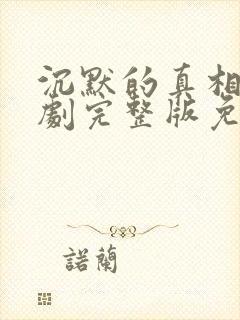 沉默的真相
劇完整版免
諾蘭